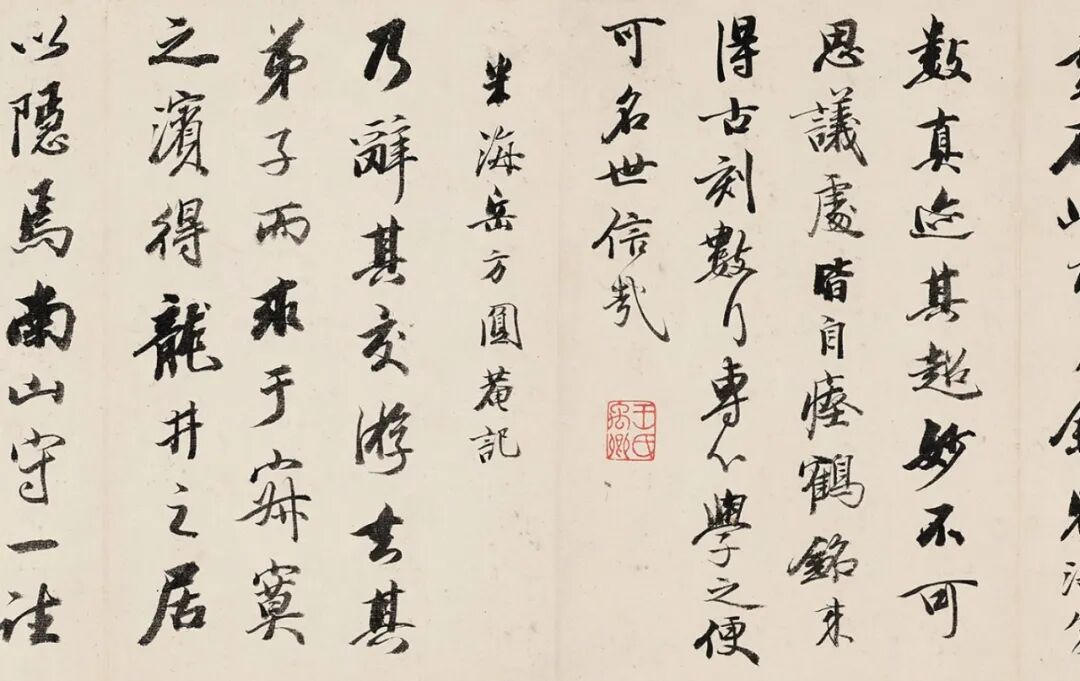 數真迹其超妙不可
思議處皆自瘞鶴銘来
得古刻數行專心學之便
可名世信哉
王氏禹卿
米海岳方圓菴記
乃辭其交游去其
弟子而求于寂寞
之濱得龍井之居
以隱焉南山守一往